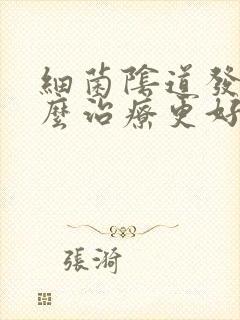 細菌陰道發
麼治療更好
張漪